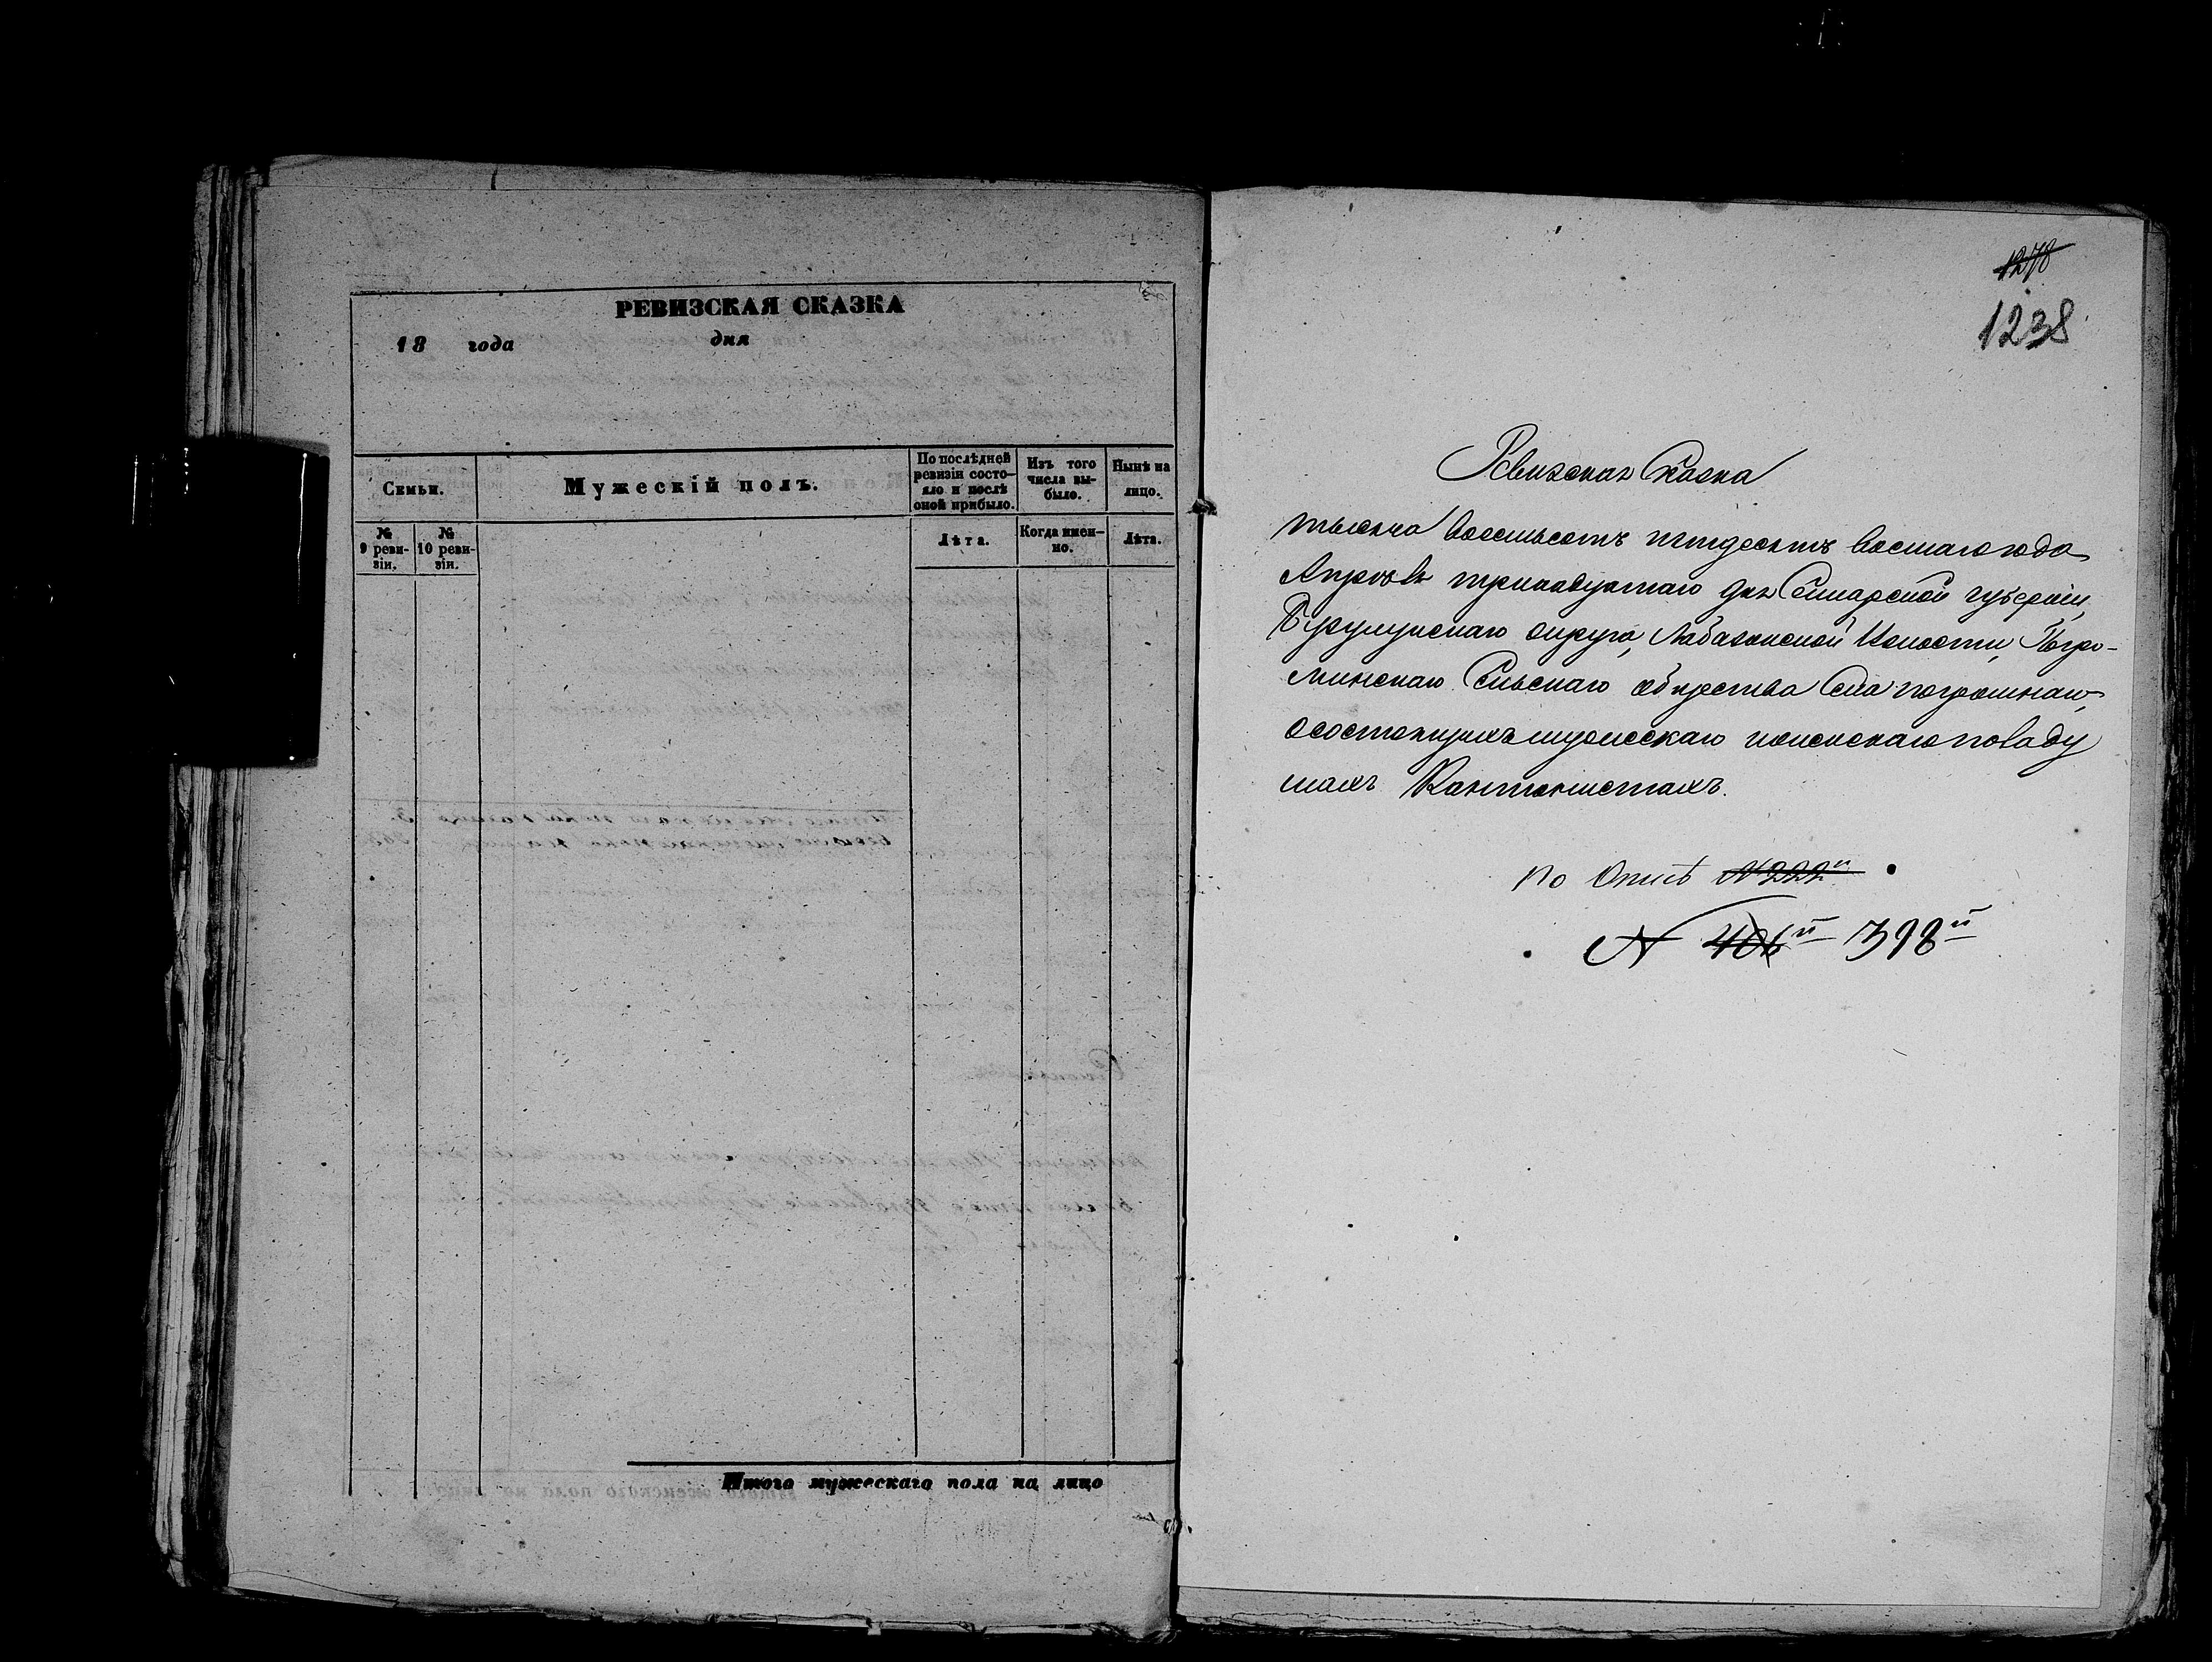 РЕВИЗСКАЯ СКАЗКА
18 года дня
Семьи.
Мужескій полъ.
По послѣдней ревизіи состо-
яло и послѣ оной прибыло.
Изъ того числа вы-
было.
Нынѣ на лицо.
№ 9 реви-
зіи.
№ 10 реви-
зіи.
Лѣта.
Когда имен-
но.
Лѣта.
Итого мужескаго пола на лицо
1278
1238
Ревизская Сказка
тысяча восемьсотъ пятдесятъ восмаго года
Апрѣля тринадцатаго дня Самарской губерніи,
Бузулукскаго округа, Лабазинской Волости, Погро-
минскаго Сельскаго общества Села погромнаго,
осостоящихъ мужескаго поваду
махъ Кантонистахъ.
по Описѣ № 222й
№ 406й 398й